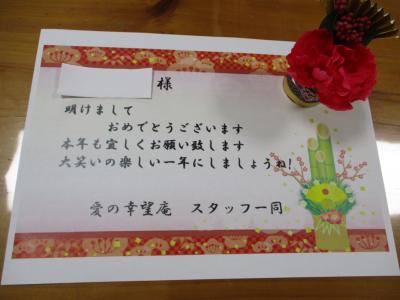 様
明けまして
おめでとうございます
本年も宜しくお願い致します
大笑いの楽しい一年にしましょうね!
愛の幸望庵 スタッフ一同